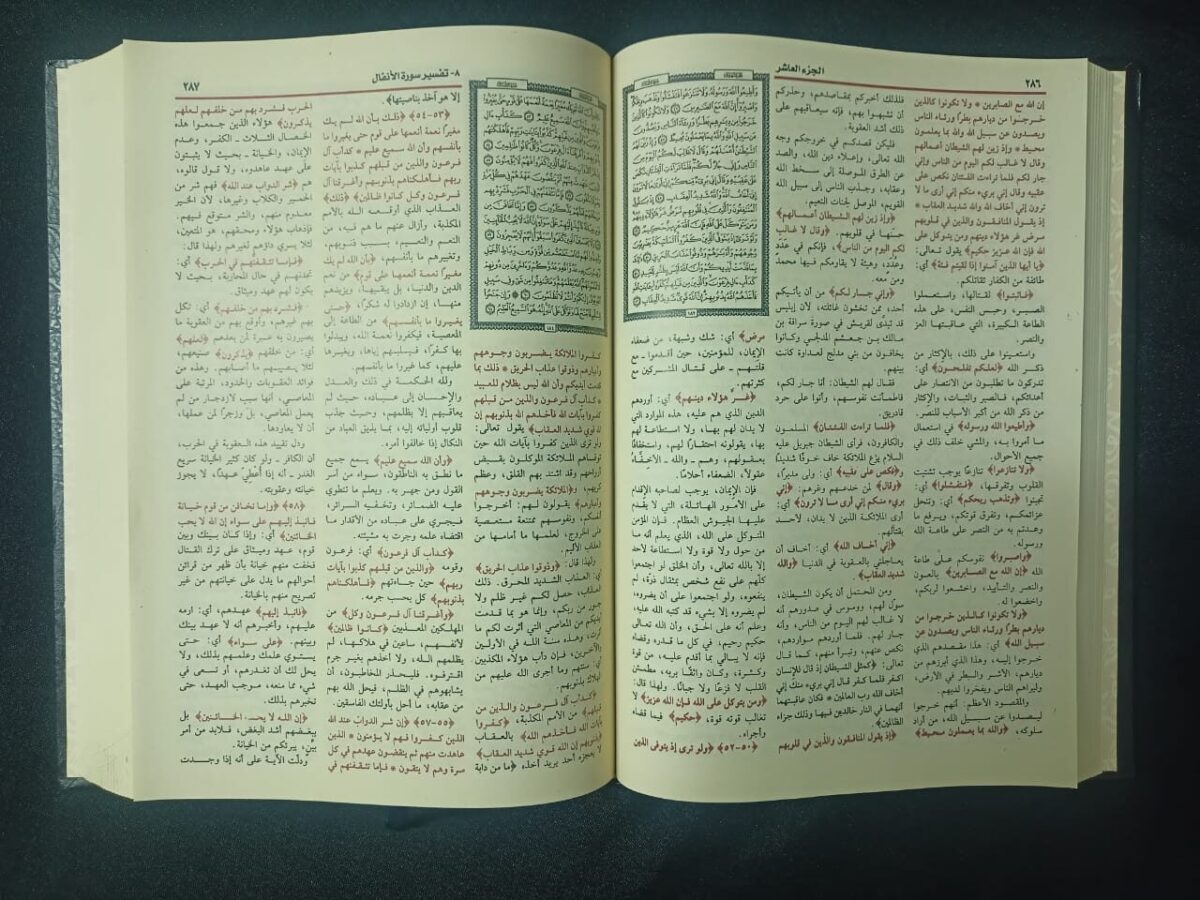 الجزء العاشر
٢٨٦
إن الله مع الصابرين * ولا تكونوا كالذين
خرجوا من ديارهم بطراً ورئاء الناس
ويصدون عن سبيل الله والله بما يعملون
محيط * وإذ زين لهم الشيطان أعمالهم
وقال لا غالب لكم اليوم من الناس وإني
جار لكم فلما تراءت الفئتان نكص على
عقبيه وقال إني بريء منكم إني أرى ما لا
ترون إني أخاف الله والله شديد العقاب *
إذ يقول المنافقون والذين في قلوبهم
مرض غر هؤلاء دينهم ومن يتوكل على
الله فإن الله عزيز حكيم﴾ يقول تعالى:
﴿يا أيها الذين آمنوا إذا لقيتم فئة﴾ أي:
طائفة من الكفار تقاتلكم.
﴿فاثبتوا﴾ لقتالها، واستعملوا
الصبر، وحبس النفس، على هذه
الطاعة الكبيرة، التي عاقبتها العز
والنصر.
واستعينوا على ذلك، بالإكثار من
ذكر الله ﴿لعلكم تفلحون﴾ أي:
تدركون ما تطلبون من الانتصار على
أعدائكم، فالصبر والثبات، والإكثار
من ذكر الله من أكبر الأسباب للنصر.
﴿وأطيعوا الله ورسوله﴾ في استعمال
ما أمروا به، والمشي خلف ذلك في
جميع الأحوال.
﴿ولا تنازعوا﴾ تنازعاً يوجب تشتيت
القلوب وتفرقها، ﴿فتفشلوا﴾ أي:
تجبنوا ﴿وتذهب ريحكم﴾ أي: وتنحل
عزائمكم، وتفرق قوتكم، ويرفع ما
وعدتم به من النصر على طاعة الله
ورسوله.
﴿واصبروا﴾ نفوسكم على طاعة
الله ﴿إن الله مع الصابرين﴾ بالعون
والنصر والتأييد، واخشعوا لربكم،
واخضعوا له.
﴿ولا تكونوا كالذين خرجوا من
ديارهم بطراً ورئاء الناس ويصدون عن
سبيل الله﴾ أي: هذا مقصدهم الذي
خرجوا إليه، وهذا الذي أبرزهم من
ديارهم، الأشر والبطر في الأرض،
وليراهم الناس ويفخروا لديهم.
والمقصود الأعظم: أنهم خرجوا
ليصدوا عن سبيل الله، من أراد
سلوكه، ﴿والله بما يعملون محيط﴾
فلذلك أخبركم بمقاصدهم، وحذركم
أن تشبهوا بهم، فإنه سيعاقبهم على
ذلك أشد العقوبة.
فليكن قصدكم في خروجكم وجه
الله تعالى، وإعلاء دين الله، والصد
عن الطرق الموصلة إلى سخط الله
وعقابه، وجذب الناس إلى سبيل الله
القويم، الموصل لجنات النعيم.
﴿وإذ زين لهم الشيطان أعمالهم﴾
حسّنها في قلوبهم. ﴿وقال لا غالب
لكم اليوم من الناس﴾، فإنكم في عَددٍ
وعُددٍ، وهيئة لا يقاومكم فيها محمدٌ
ومن معه.
﴿وإني جار لكم﴾ من أن يأتيكم
أحد، ممن تخشون غائلته، لأن إبليس
قد تبدى لقريش في صورة سراقة بن
مالك بن جعشم المدلجي وكانوا
يخافون من بني مدلج لعداوة كانت
بينهم.
فقال لهم الشيطان: أنا جار لكم،
فاطمأنت نفوسهم، وأتوا على حرد
قادرين.
﴿فلما تراءت الفئتان﴾ المسلمون
والكافرون، فرأى الشيطان جبريل عليه
السلام يزع الملائكة خاف خوفاً شديداً
﴿فنكص على عقبيه﴾ أي: ولى مدبراً،
﴿وقال﴾ لمن خدعهم وغرهم: ﴿إني
بريء منكم إني أرى ما لا ترون﴾ أي:
أرى الملائكة الذين لا يدان، لأحد
بقتالهم.
﴿إني أخاف الله﴾ أي: أخاف أن
يعاجلني بالعقوبة في الدنيا ﴿والله
شديد العقاب﴾.
ومن المحتمل أن يكون الشيطان،
سوّل لهم، ووسوس في صدورهم أنه
لا غالب لهم اليوم من الناس، وأنه
جار لهم. فلما أوردهم مواردهم،
نكص عنهم، وتبرأ منهم، كما قال
تعالى: ﴿كمثل الشيطان إذ قال للإنسان
اكفر فلما كفر قال إني بريء منك إني
أخاف الله رب العالمين * فكان عاقبتهما
أنهما في النار خالدين فيها وذلك جزاء
الظالمين﴾.
﴿إذ يقول المنافقون والذين في قلوبهم
مرض﴾ أي: شك وشبهة، من ضعفاء
الإيمان، للمؤمنين، حين أقدموا ـ مع
قلّتهم ـ على قتال المشركين مع
كثرتهم.
﴿غـرَّ هؤلاء دينهم﴾ أي: أوردهم
الدين الذي هم عليه، هذه الموارد التي
لا يدان لهم بها، ولا استطاعة لهم
بها، يقولونه احتقاراً لهم، واستخفافاً
بعقولهم، وهم ـ والله ـ الأخفَّاءُ
عقولاً، الضعفاء أحلاماً.
فإن الإيمان، يوجب لصاحبه الإقدام
على الأمور الهائلة، التي لا يقدم
عليها الجيوش العظام. فإن المؤمن
المتوكل على الله، الذي يعلم أنه ما
من حول ولا قوة ولا استطاعة لأحد
إلا بالله تعالى، وأن الخلق لو اجتمعوا
كلهم على نفع شخص بمثقال ذرة، لم
ينفعوه، ولو اجتمعوا على أن يضروه،
لم يضروه إلا بشيء قد كتبه الله عليه،
وعلم أنه على الحق، وأن الله تعالى
حكيم رحيم، في كل ما قدره، وقضاه
فإنه لا يبالي بما أقدم عليه، من قوة
وكثرة، وكان واثقاً بربه، مطمئن
القلب لا فزعاً ولا جباناً. ولهذا قال:
﴿ومن يتوكل على الله فإن الله عزيز﴾ لا
تغالب قوته قوة، ﴿حكيم﴾ فيما قضاه
وأجراه.
﴿٥٠ - ٥٢﴾ ﴿ولو ترى إذ يتوفى الذين
٨- تفسير سورة الأنفال
٢٨٧
كفروا الملائكة يضربون وجوههم
وأدبارهم وذوقوا عذاب الحريق * ذلك بما
قدمت أيديكم وأن الله ليس بظلام للعبيد
* كدأب آل فرعون والذين من قبلهم
كفروا بآيات الله فأخذهم الله بذنوبهم إن
الله قوي شديد العقاب﴾ يقول تعالى:
ولو ترى الذين كفروا بآيات الله حين
توفاهم الملائكة الموكلون بقبض
أرواحهم وقد اشتد بهم القلق، وعظم
كربهم، و﴿الملائكة يضربون وجوههم
وأدبارهم﴾ يقولون لهم: أخرجوا
أنفسكم، ونفوسهم ممتنعة مستعصية
على الخروج، لعلمها ما أمامها من
العذاب الأليم.
ولهذا قال: ﴿وذوقوا عذاب الحريق﴾
أي: العذاب الشديد المحرق. ذلك
العذاب، حصل لكم غير ظلم ولا
جور من ربكم، وإنما هو بما قدمت
أيديكم من المعاصي التي أثرت لكم ما
أثرت، وهذه سنة الله في الأولين
والآخرين، فإن دأب هؤلاء المكذبين
أي: سنتهم وما أجرى الله عليهم من
الهلاك بذنوبهم.
﴿كدأب آل فرعون والذين من
قبلهم﴾ من الأمم المكذبة، ﴿كفروا
بآيات الله فأخذهم الله﴾ بالعقاب
﴿بذنوبهم إن الله قوي شديد العقاب﴾
لا يعجزه أحد يريد أخذه ﴿ما من دابة
إلا هو آخذ بناصيتها﴾.
﴿٥٣-٥٤﴾ ﴿ذلك بأن الله لم يك
مغيراً نعمة أنعمها على قوم حتى يغيروا ما
بأنفسهم وأن الله سميع عليم * كدأب آل
فرعون والذين من قبلهم كذبوا بآيات
ربهم فأهلكناهم بذنوبهم وأغرقنا آل
فرعون وكل كانوا ظالمين﴾ ﴿ذلك﴾
العذاب الذي أوقعه الله بالأمم
المكذبة، وأزال عنهم ما هم فيه، من
النعم والنعيم، بسبب ذنوبهم،
وتغييرهم ما بأنفسهم، ﴿بأن الله لم يك
مغيراً نعمة أنعمها على قوم﴾ من نعم
الدين والدنيا، بل يبقيها، ويزيدهم
منها، إن ازدادوا له شكراً، ﴿حتى
يغيروا ما بأنفسهم﴾ من الطاعة إلى
المعصية، فيكفروا نعمة الله، ويبدلوا
بها كفراً، فيسلبهم إياها، ويغيرها
عليهم، كما غيروا ما بأنفسهم.
ولله الحكمة في ذلك والعدل
والإحسان إلى عباده، حيث لم
يعاقبهم إلا بظلمهم، وحيث جذب
قلوب أوليائه إليه، بما يذيق العباد من
النكال إذا خالفوا أمره.
﴿وأن الله سميع عليم﴾ يسمع جميع
ما نطق به الناطقون، سواء من أسر
القول ومن جهر به. ويعلم ما تنطوي
عليه الضمائر، وتخفيه السرائر،
فيجري على عباده من الأقدار ما
اقتضاه علمه وجرت به مشيئته.
﴿كدأب آل فرعون﴾ أي: فرعون
وقومه ﴿والذين من قبلهم كذبوا بآيات
ربهم﴾ حين جاءتهم ﴿فأهلكناهم
بذنوبهم﴾ كل بحسب جرمه.
﴿وأغرقنا آل فرعون وكل﴾ من
المهلكين المعذبين ﴿كانوا ظالمين﴾
لأنفسهم، ساعين في هلاكها، لم
يظلمهم الله، ولا أخذهم بغير جرم
اقترفوه. فليحذر المخاطبون، أن
يشابهوهم في الظلم، فيحل الله بهم
من عقابه، ما أحل بأولئك الفاسقين.
﴿٥٥-٥٧﴾ ﴿إن شر الدواب عند الله
الذين كفروا فهم لا يؤمنون * الذين
عاهدت منهم ثم ينقضون عهدهم في كل
مرة وهم لا يتقون * فإما تثقفنهم في
الحرب فشرد بهم من خلفهم لعلهم
يذكرون﴾ هؤلاء الذين جمعوا هذه
الخصال الثلاث ـ الكفر، وعدم
الإيمان، والخيانة ـ بحيث لا يثبتون
على عهد عاهدوه، ولا قول قالوه،
هم ﴿شر الدواب عند الله﴾ فهم شر من
الحمير والكلاب وغيرها، لأن الخير
معدوم منهم، والشر متوقع فيهم.
فإذهاب هؤلاء ومحقهم، هو المتعين،
لئلا يسري داؤهم لغيرهم ولهذا قال:
﴿فإما تثقفنهم في الحرب﴾ أي:
تجدنهم في حال المحاربة، بحيث لا
يكون لهم عهد وميثاق.
﴿فشرد بهم من خلفهم﴾ أي: نكل
بهم غيرهم، وأوقع بهم من العقوبة ما
يصيرون به عبرة لمن بعدهم ﴿لعلهم﴾
أي: من خلفهم ﴿يذكرون﴾ صنيعهم،
لئلا يصيبهم ما أصابهم. وهذه من
فوائد العقوبات والحدود، المرتبة على
المعاصي، أنها سبب لازدجار من لم
يعمل المعاصي، بل وزجراً لمن عملها،
أن لا يعاودها.
ودل تقييد هذه العقوبة في الحرب،
أن الكافر ـ ولو كان كثير الخيانة سريع
الغدر ـ أنه إذا أُعطِيَ عهداً، لا يجوز
خيانته وعقوبته.
﴿٥٨﴾ ﴿وإما تخافن من قوم خيانة
فانبذ إليهم على سواء إن الله لا يحب
الخائنين﴾ أي: وإذا كان بينك وبين
قوم، عهد وميثاق على ترك القتال
فخفت منهم خيانة بأن ظهر من قرائن
أحوالهم ما يدل على خيانتهم من غير
تصريح منهم بالخيانة.
﴿فانبذ إليهم﴾ عهدهم، أي: ارمه
عليهم، وأخبرهم أنه لا عهد بينك
وبينهم. ﴿على سواء﴾ أي: حتى
يستوي علمك وعلمهم بذلك، ولا
يحل لك أن تغدرهم، أو تسعى في
شيء مما منعه، موجب العهد، حتى
تخبرهم بذلك.
﴿إن الله لا يحب الخائنين﴾ بل
يبغضهم أشد البغض، فلا بد من أمر
بيِّن، يبرئكم من الخيانة.
ودلّت الآية على أنه إذا وجدت